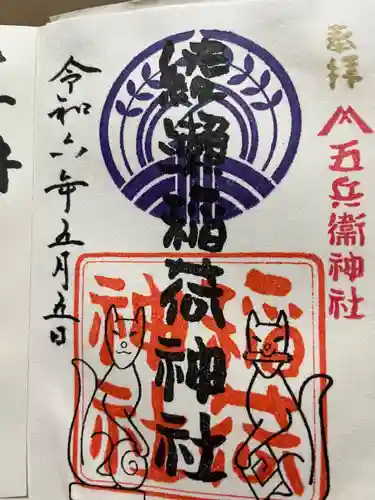 奉拝
五兵衛神社
綾瀬稲荷神社
令和六年五月五日
稲荷
神社